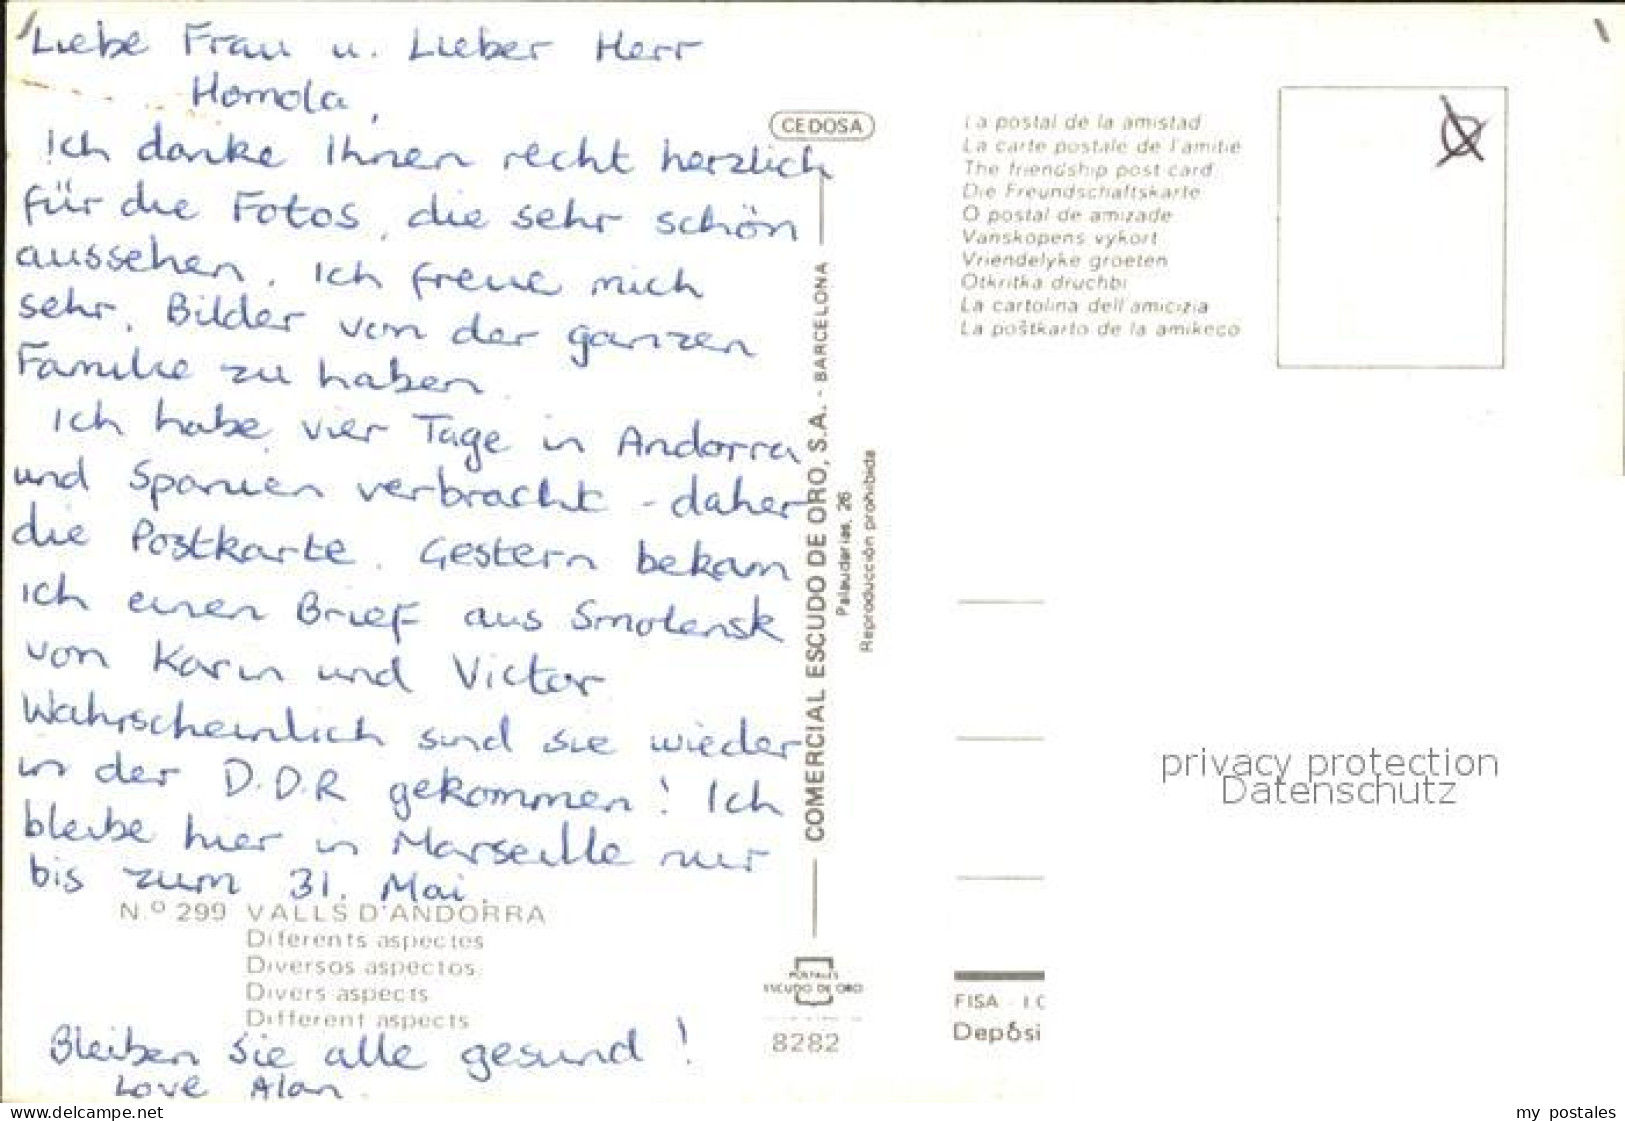 Liebe Frau u. Lieber Herr
Homola,
Ich danke Ihnen recht herzlich
für die Fotos, die sehr schön
aussehen. Ich freue mich
sehr, Bilder von der ganzen
Familie zu haben.
Ich habe vier Tage in Andorra
und Spanien verbracht - daher
die Postkarte. Gestern bekam
ich einen Brief aus Smolensk
von Karin und Victor
Wahrscheinlich sind sie wieder
in der D.D.R gekommen! Ich
bleibe hier in Marseille nur
bis zum 31. Mai.
N.º 299 VALLS D'ANDORRA
Diferents aspectes
Diversos aspectos
Divers aspects
Different aspects
Bleiben Sie alle gesund!
Love Alan.
CEDOSA
COMERCIAL ESCUDO DE ORO, S.A. - BARCELONA
Palaudarias, 26
Reproducción prohibida
POSTALES
ESCUDO DE ORO
8282
La postal de la amistad
La carte postale de l'amitié
The friendship post card
Die Freundschaftskarte
O postal de amizade
Vänskopens vykort
Vriendelyke groeten
Otkritka druchbi
La cartolina dell'amicizia
La poŝtkarto de la amikeco
privacy protection
Datenschutz
FISA - I.C
Depósi
delcampe.net
my postales